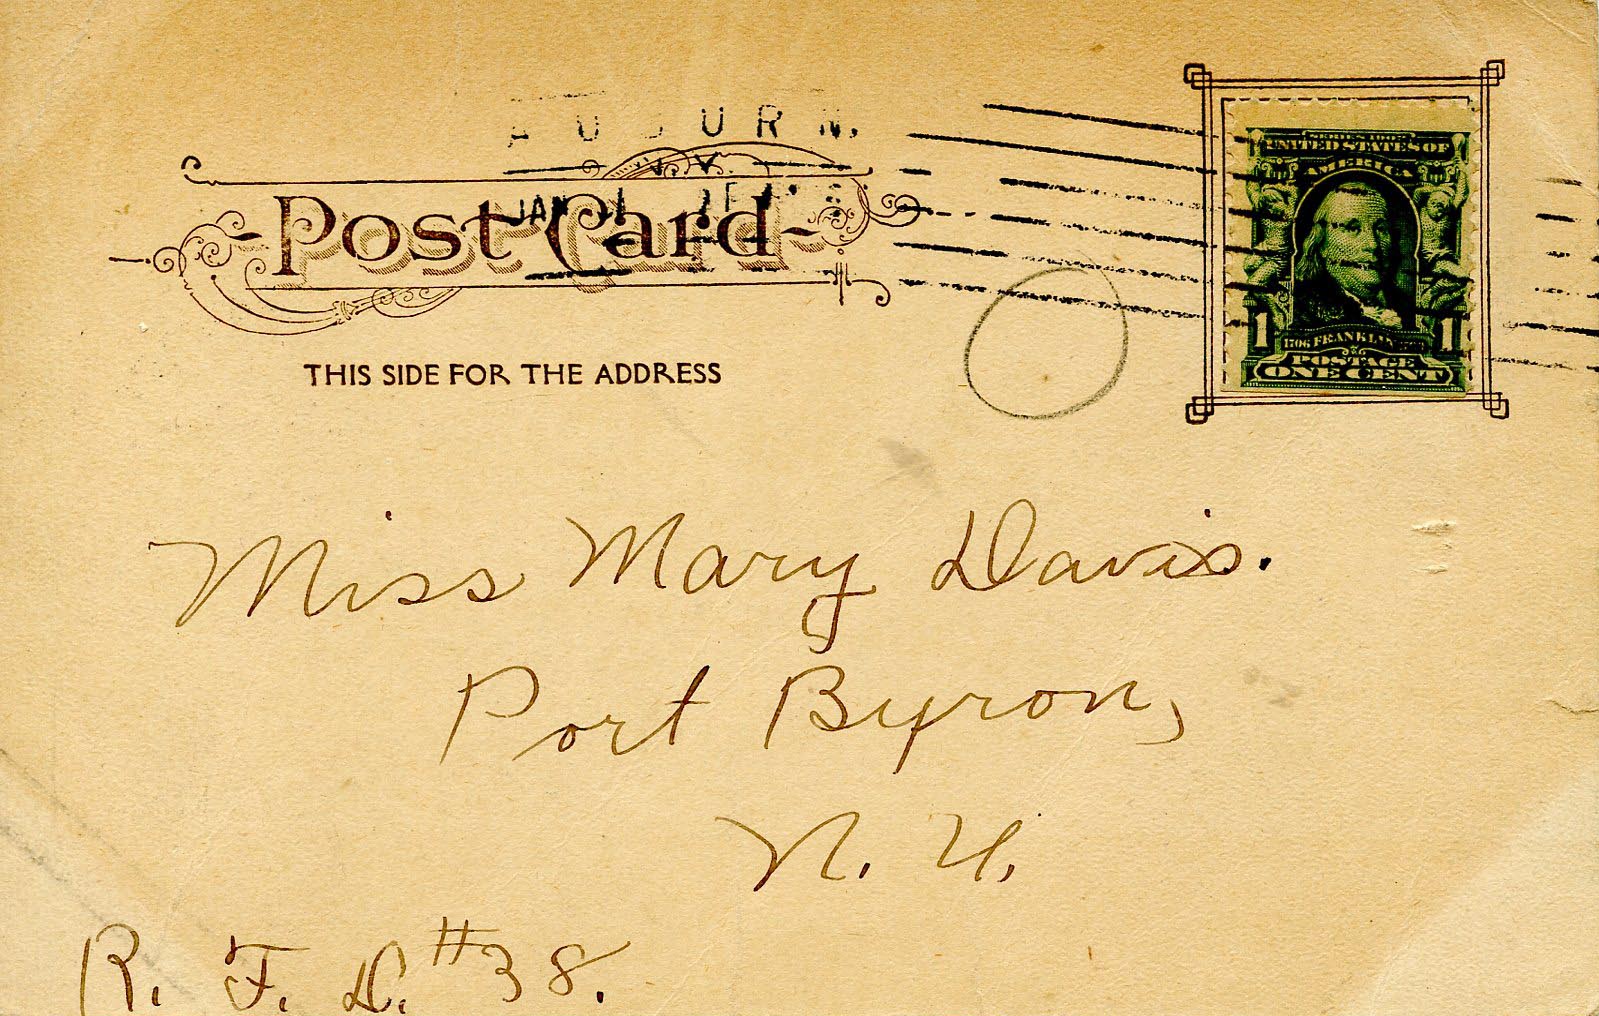 AUBURN,
JAN 31
Post Card
THIS SIDE FOR THE ADDRESS
SERIES 1902
UNITED STATES OF
AMERICA
1 FRANKLIN 1
POSTAGE
ONE CENT
Miss Mary Davis.
Port Byron,
N. Y.
R. F. D. #38.